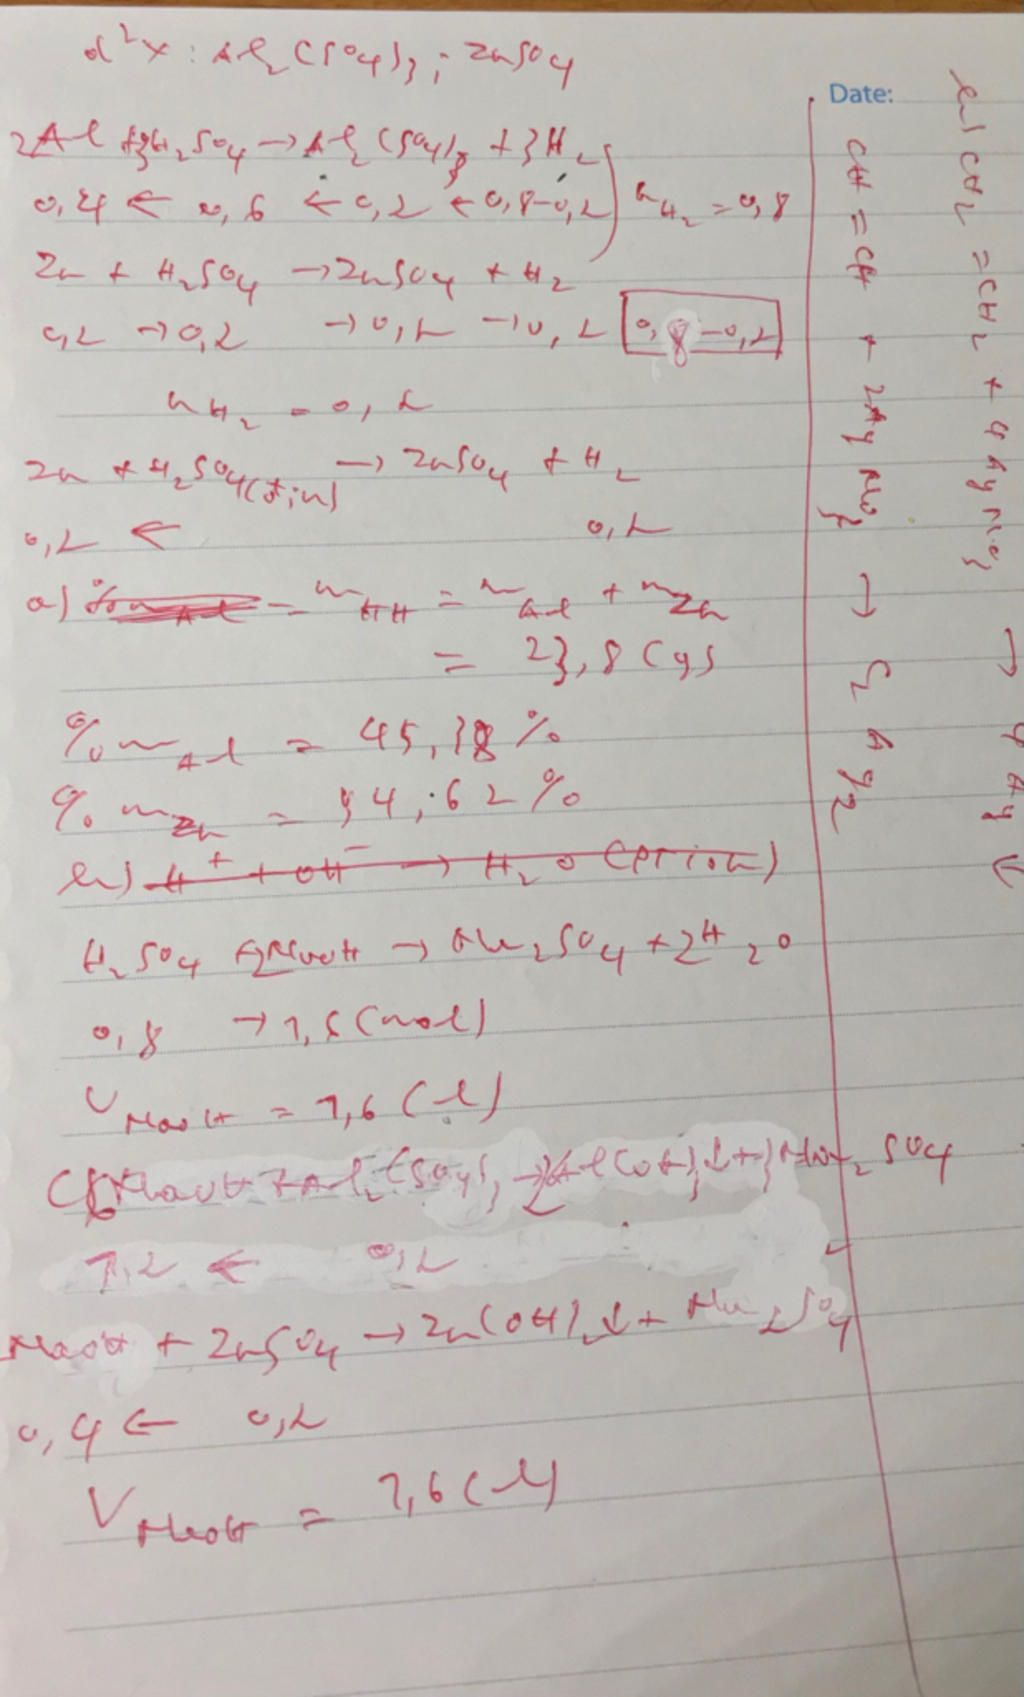 d²X: Al₂(SO₄)₃; ZnSO₄
Date:
2Al + 3H₂SO₄ → Al₂(SO₄)₃ + 3H₂
0,4 ← 0,6 ← 0,2 ← 0,8-0,2
nH₂ = 0,8
Zn + H₂SO₄ → ZnSO₄ + H₂
0,2 → 0,2 → 0,2 → 0,2
0,8 - 0,2
nH₂ = 0,2
Zn + H₂SO₄ → ZnSO₄ + H₂
0,2 ← 0,2
a) = mHH = mAl + mZn
= 23,8 (g)
%mAl = 45,38%
%mZn = 54,62%
b) H⁺ + OH⁻ → H₂O
H₂SO₄ + 2NaOH → Na₂SO₄ + 2H₂O
0,8 → 1,6 (mol)
VNaOH = 1,6 (l)
C 6NaOH + Al₂(SO₄)₃ → 2Al(OH)₃↓ + 3Na₂SO₄
1,2 ← 0,2
NaOH + ZnSO₄ → Zn(OH)₂↓ + Na₂SO₄
0,4 ← 0,2
VNaOH = 1,6 (l)
CH = CH + 2AgNO₃ → C₂Ag₂
CH₂ = CH₂ + 4AgNO₃ → 4Ag↓